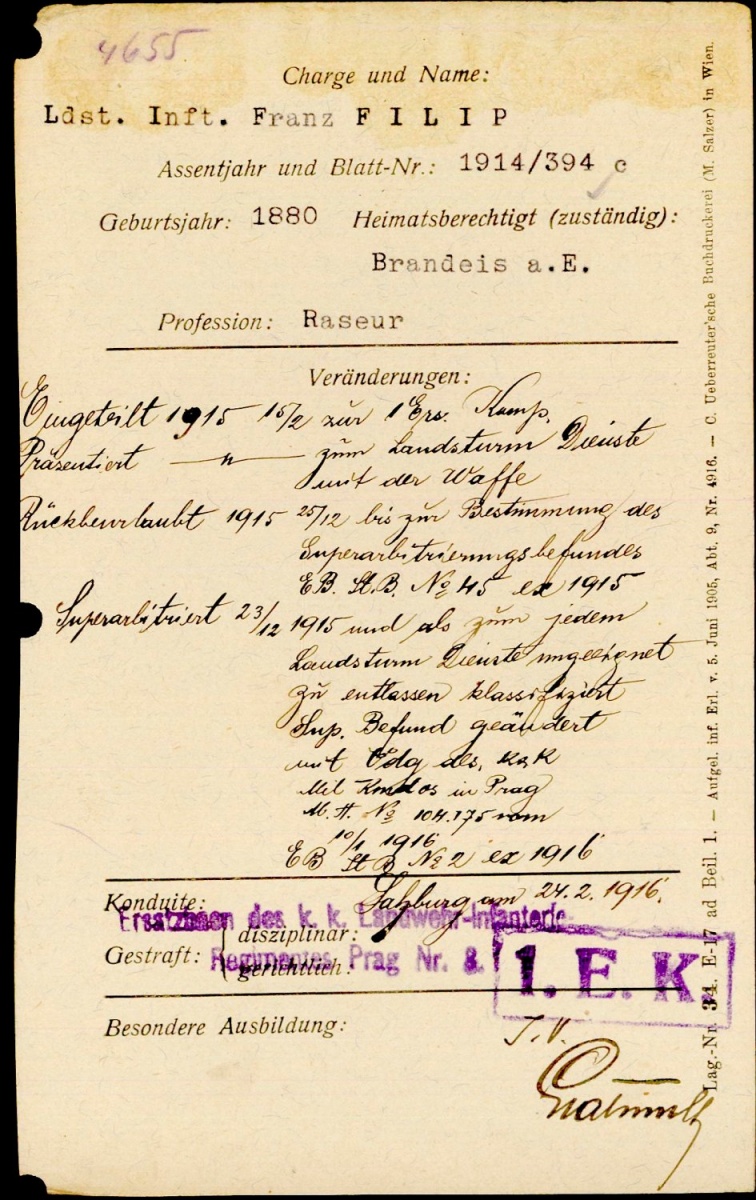 4655
Charge und Name:
Ldst. Inft. Franz FILIP
Assentjahr und Blatt-Nr.: 1914/394 c
Geburtsjahr: 1880 Heimatsberechtigt (zuständig):
Brandeis a.E.
Profession: Raseur
Veränderungen:
Eingeteilt 1915 15/2 zur 1 Ers. Komp.
Präsentiert — " — zum Landsturm Dienste
mit der Waffe
Rückbeurlaubt 1915 25/12 bis zur Bestimmung des
Superarbitrierungsbefundes
EB. St.B. No 45 ex 1915
Superarbitriert 23/12 1915 und als zum jedem
Landsturm Dienste ungeeignet
zu entlassen klassifiziert
Sup. Befund geändert
mit des. k.u.k
Mil Kmdos in Prag
M. A. No 104.175 vom
10/1 1916
EB St B No 2 ex 1916
Konduite: Salzburg am 24.2.1916.
Ersatz des k. k. Landwehr-Infanterie-
Gestraft: { disziplinar:
Regimentes Prag Nr. 8.
gerichtlich:
1. E. K.
Besondere Ausbildung:
I.V.
Lag.-Nr. 34. E-17 ad Beil. 1. — Aufgel. inf. Erl. v. 5. Juni 1905, Abt. 9, Nr. 4916. — C. Ueberreuter'sche Buchdruckerei (M. Salzer) in Wien.